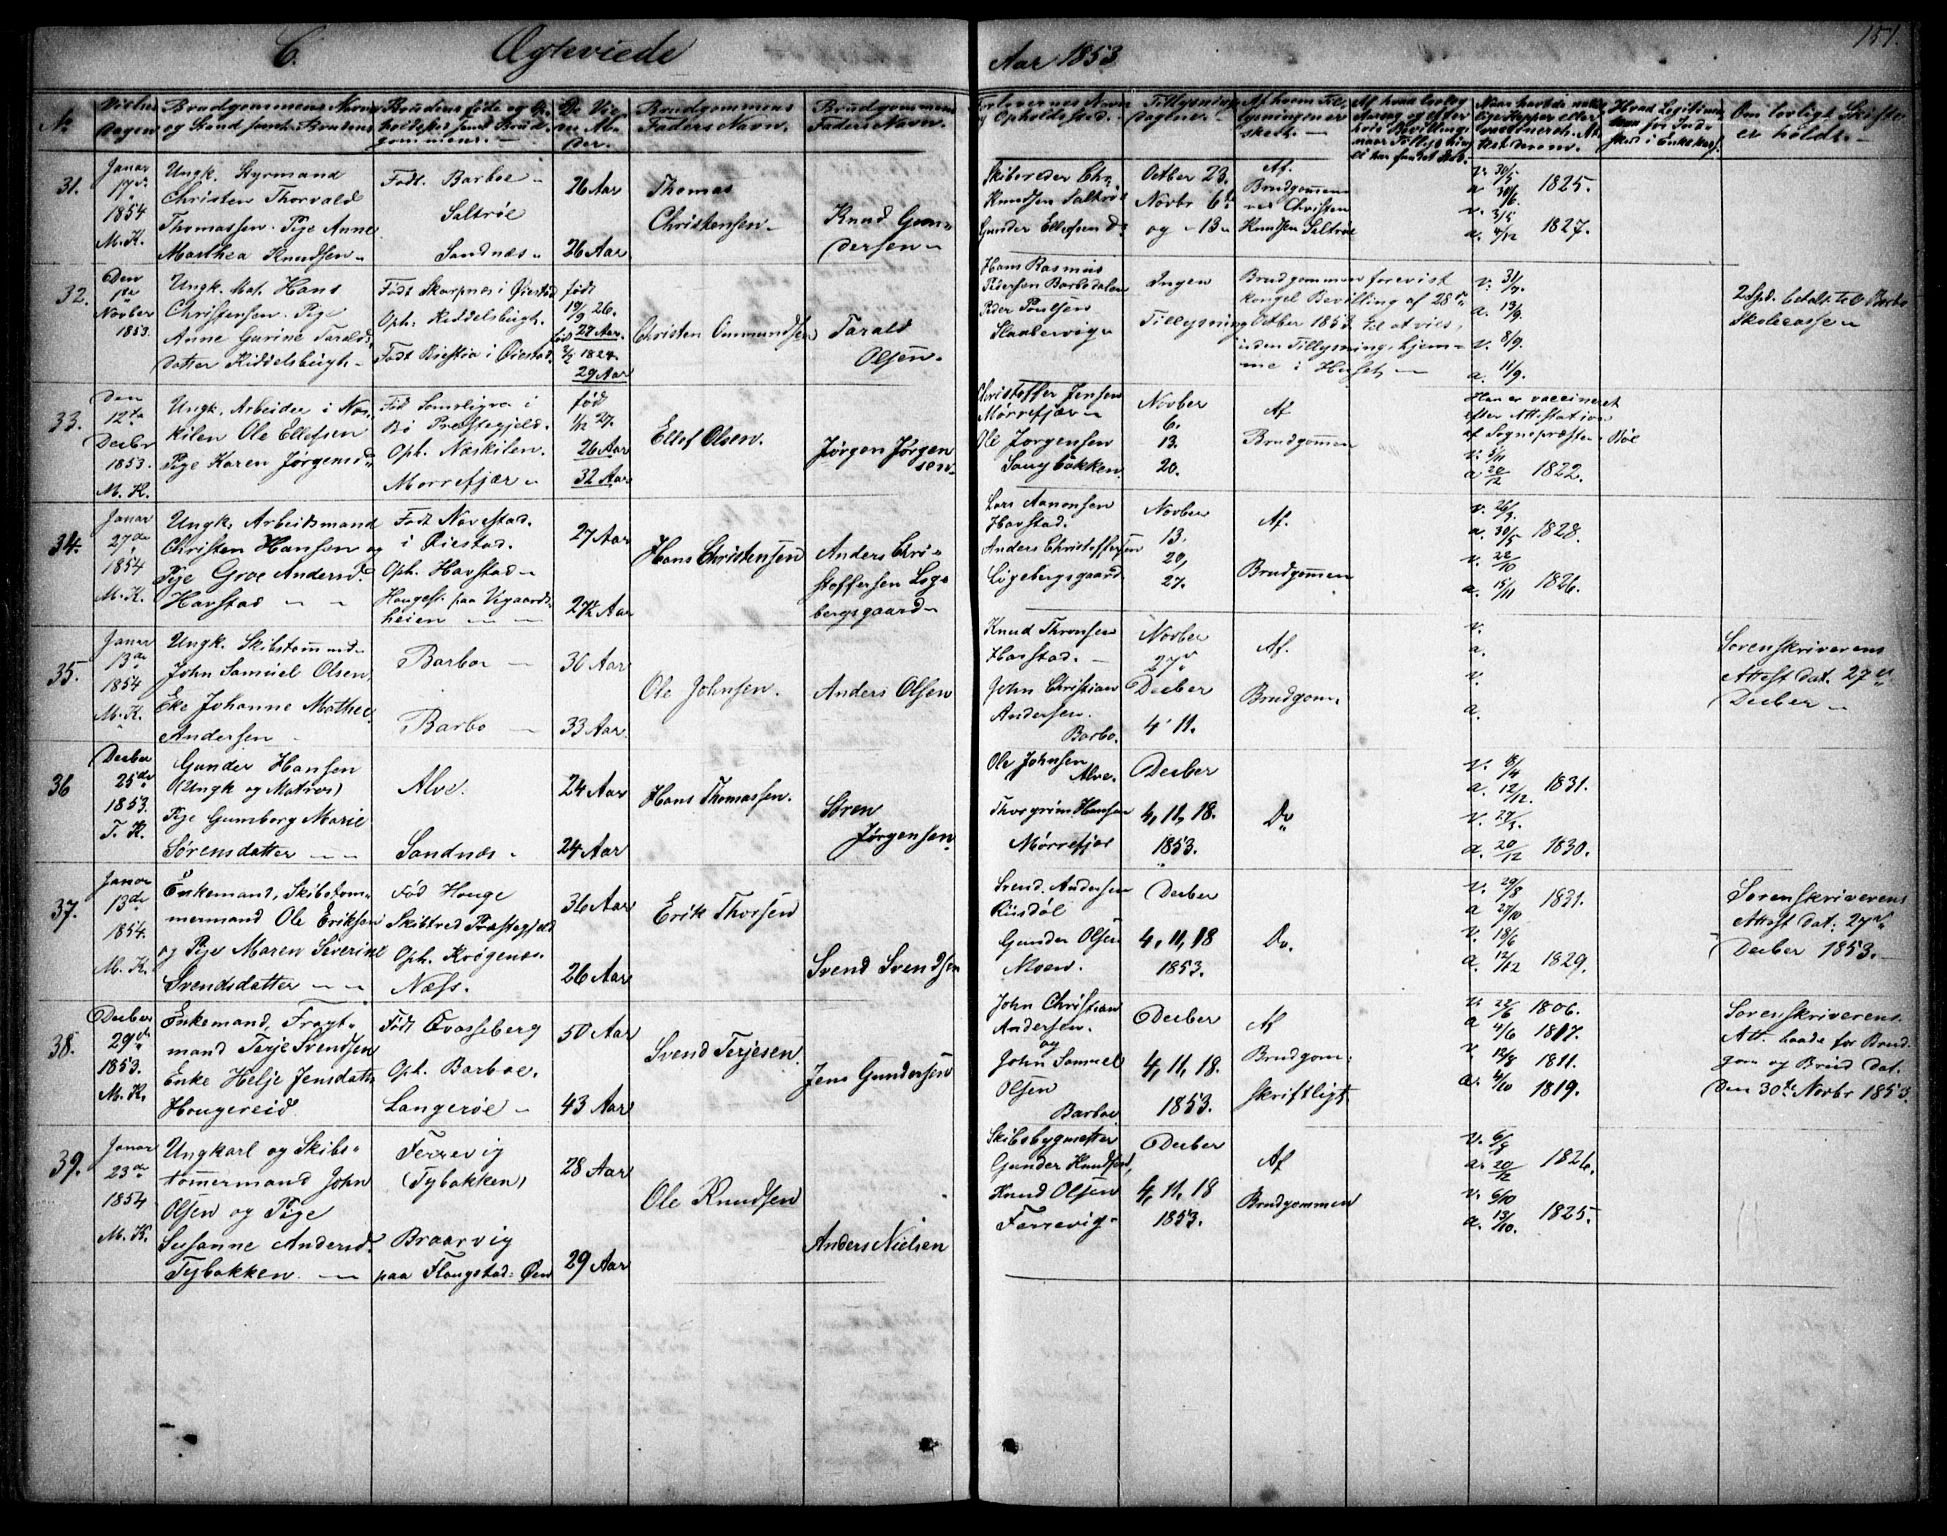 C. Ægteviede Aar 1853 151.
No
Vielses Dagen
Brudgommens Navn og Stand samt Brudens
De Vie
Brudgommens Faders Navn.
Brudgommens Faders Navn.
Forlovernes Navn og Opholdssted.
Tillysnings dagene
Af hvem Til lysningen er skeet.
Om lovligt Skifte er holdt.
31.
Janar
1854
M. K.
Ungk. Styrmand
Christen Thorvald
Thomassen. Pige Anne
Marthea Knudsen
Født. Barboe
Saltrøe
Sandnæs
26 Aar
26 Aar
Thomas
Christensen
Knud Gun-
dersen
Skibereder Chr.
Knudsen Saltrøe
Gunder Ellefsen Do
Octber 23.
Novbr 6te
og 13
Af
Brudgommen
og Christen
Knudsen Saltrøe
v. 30/5
a 30/6 1825.
v. 3/5
a. 4/12 1827.
32.
Den
1ste
Novber
1853.
Ungk. Mat. Hans
Christensen. Pige
Anne Gurine Taralds
datter Kiddelsbugt
Født Skarpnes i Øiestad
Oph. Kiddelsbugt.
Født Biestia i Øiestad
født
19/9 26.
27 Aar
1824.
29 Aar
Christen Ommundsen
Tarald
Olsen.
Hans Rasmus
Pedersen Barbodalen
Peder Poulsen
Slaabervig
Ingen
Tillysning
Brudgommen forevist
kongel Bevilling af 28de
Octber 1853. til at vies,
uden Tillysning, hjem-
me i Huset,
v. 31/7.
a. 13/9.
v. 8/9.
a. 11/9.
2 Spd. betalt til Barbo
Skolecasse
33.
Den
12te
Decbr
1853.
M. K.
Ungk. Arbeider i Næs
kilen Ole Ellefsen
Pige Karen Jørgensd
Fød Samsligra i
Bø Præstegjeld.
Oph. Næskilen.
Morrefjær
fød
1/12 27.
26 Aar
32 Aar
Ellef Olsen.
Jørgen Jørgen
sen
Christoffer Jensen
Mørrefjær
Ole Jørgensen
Sangbakken
Novber
6.
13.
20.
Af
Brudgommen
Han er vaccineret
efter Attestation
af Sognepræsten i Bøe
v. 5/11
a. 20/12 1822.
34.
Janar
27de
1854
M. K.
Ungk. Arbeidsmand
Christen Hansen og
Pige Groe Andersd
Havstad
Født Navestad.
i Øiestad.
Oph. Havstad
paa Vegaards
heien
27 Aar
27½ Aar
Hans Christensen
Anders Chri-
stoffersen Løge
bergsgaard
Lars Aanonsen
Havstad.
Anders Christoffersen
Ligebergsgaard
Novber
13.
20,
27.
Af.
Brudgommen
v. 26/3.
a. 30/5 1828.
v. 22/10
a. 15/11 1826.
35.
Janar
13de
1854
M. K.
Ungk. Skibstømmerm
John Samuel Olsen,
Eke Johanne Mathea
Andersen
Barboe
Barbo
36 Aar
33 Aar
Ole Johnsen.
Anders Olsen
Knud Thronsen
Havstad.
John Christian
Andersen.
Barbo.
Novber
27de
Decber
4 11.
Af.
Brudgom.
v.
a.
v.
a.
Sorenskriverens
Attest dat. 27de
Decber
36
Decber
25de
1853.
T. K.
Gunder Hansen
(Ungk og Matros)
Pige Gumborg Marie
Sørensdatter
Alve.
Sandnæs
24 Aar
24 Aar
Hans Thomassen.
Sören
Jørgensen
Ole Johnsen
Alve.
Thorgrim Hansen
Mørrefjær
Decber
4, 11, 18.
1853.
Do
v. 8/4
a. 12/12. 1831.
v. 27/3.
a. 20/12 1830.
37.
Janar
13de
1854.
M. K.
Enkemand, Skibstøm-
mermand Ole Eriksen
og Pige Maren Severine
Svendsdatter
Fød Houge
Skiltred Præstegjeld
Oph. Krøgenæs.
Næss.
36 Aar
26 Aar
Erik Thorsen
Svend Svendsen
Svend. Andersen
Riisdøl
Gunder Olsen
Moen.
Decber
4, 11, 18
1853.
Do.
v. 29/8 1831.
a 27/10
v. 18/6
a. 12/12 1829.
Sorenskriverens
Attest dat. 27de
Decber 1853.
38.
Decber
29de
1853.
M. K.
Enkemand, Fragt-
mand Terje Svendsen
Enke Helje Jensdatter
Hougereid
Født Qvasseberg
Oph. Barboe.
Langerøe
50 Aar
43 Aar
Svend Terjesen
Jens Gundersen
John Christian
Andersen.
og
John Samuel
Olsen
Barboe
Decber
4, 11, 18.
1853.
Af
Brudgom:
skriftligt
v. 22/6 1806.
a 4/6 1817.
v. 12/8 1811.
a. 4/10 1819.
Sorenskriverens
Att. baade for Brud
gom og Brud dat.
Den 30te Novbr 1853.
39.
Janar
23de
1854
M. K.
Ungkarl og Skibs-
tømmermand John
Olsen og Pige
Susanne Andersd.
Tybakken.
Ferrevig
(Tybakken)
Braarvig
paa Flougstad. Øen
28 Aar
29 Aar
Ole Knudsen
Anders Nielsen
Skibsbygmester
Gunder Knudsen,
Knud Olsen
Ferrevig
Decber
4, 11, 18
1853.
Af
Brudgommen
v. 6/8
a. 20/12 1826.
v. 6/10
a. 13/10. 1825.